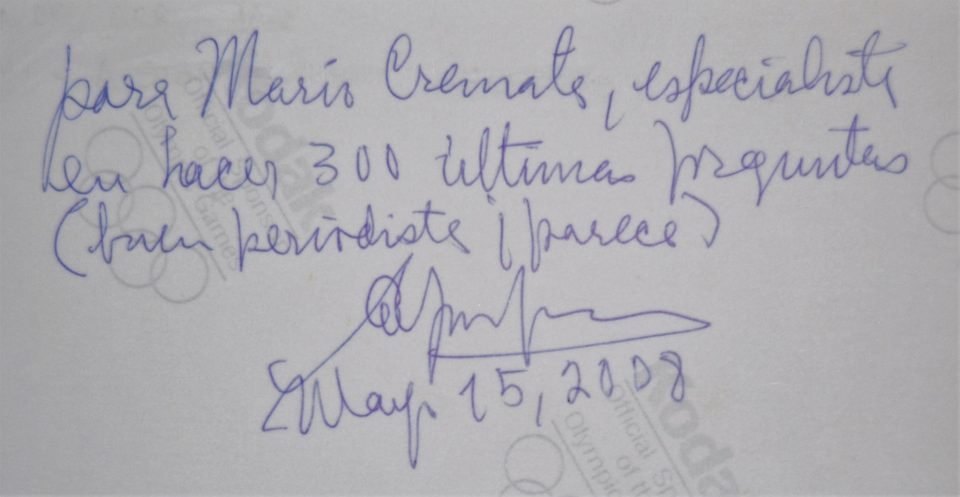 para Mario Cremata, especialista
en hacer 300 últimas preguntas
(buen periodista ¡parece)
May. 15, 2008
Kodak
Official Sponsor
of the
Olympic Games
Kodak
Official Sp
of th
Olympic